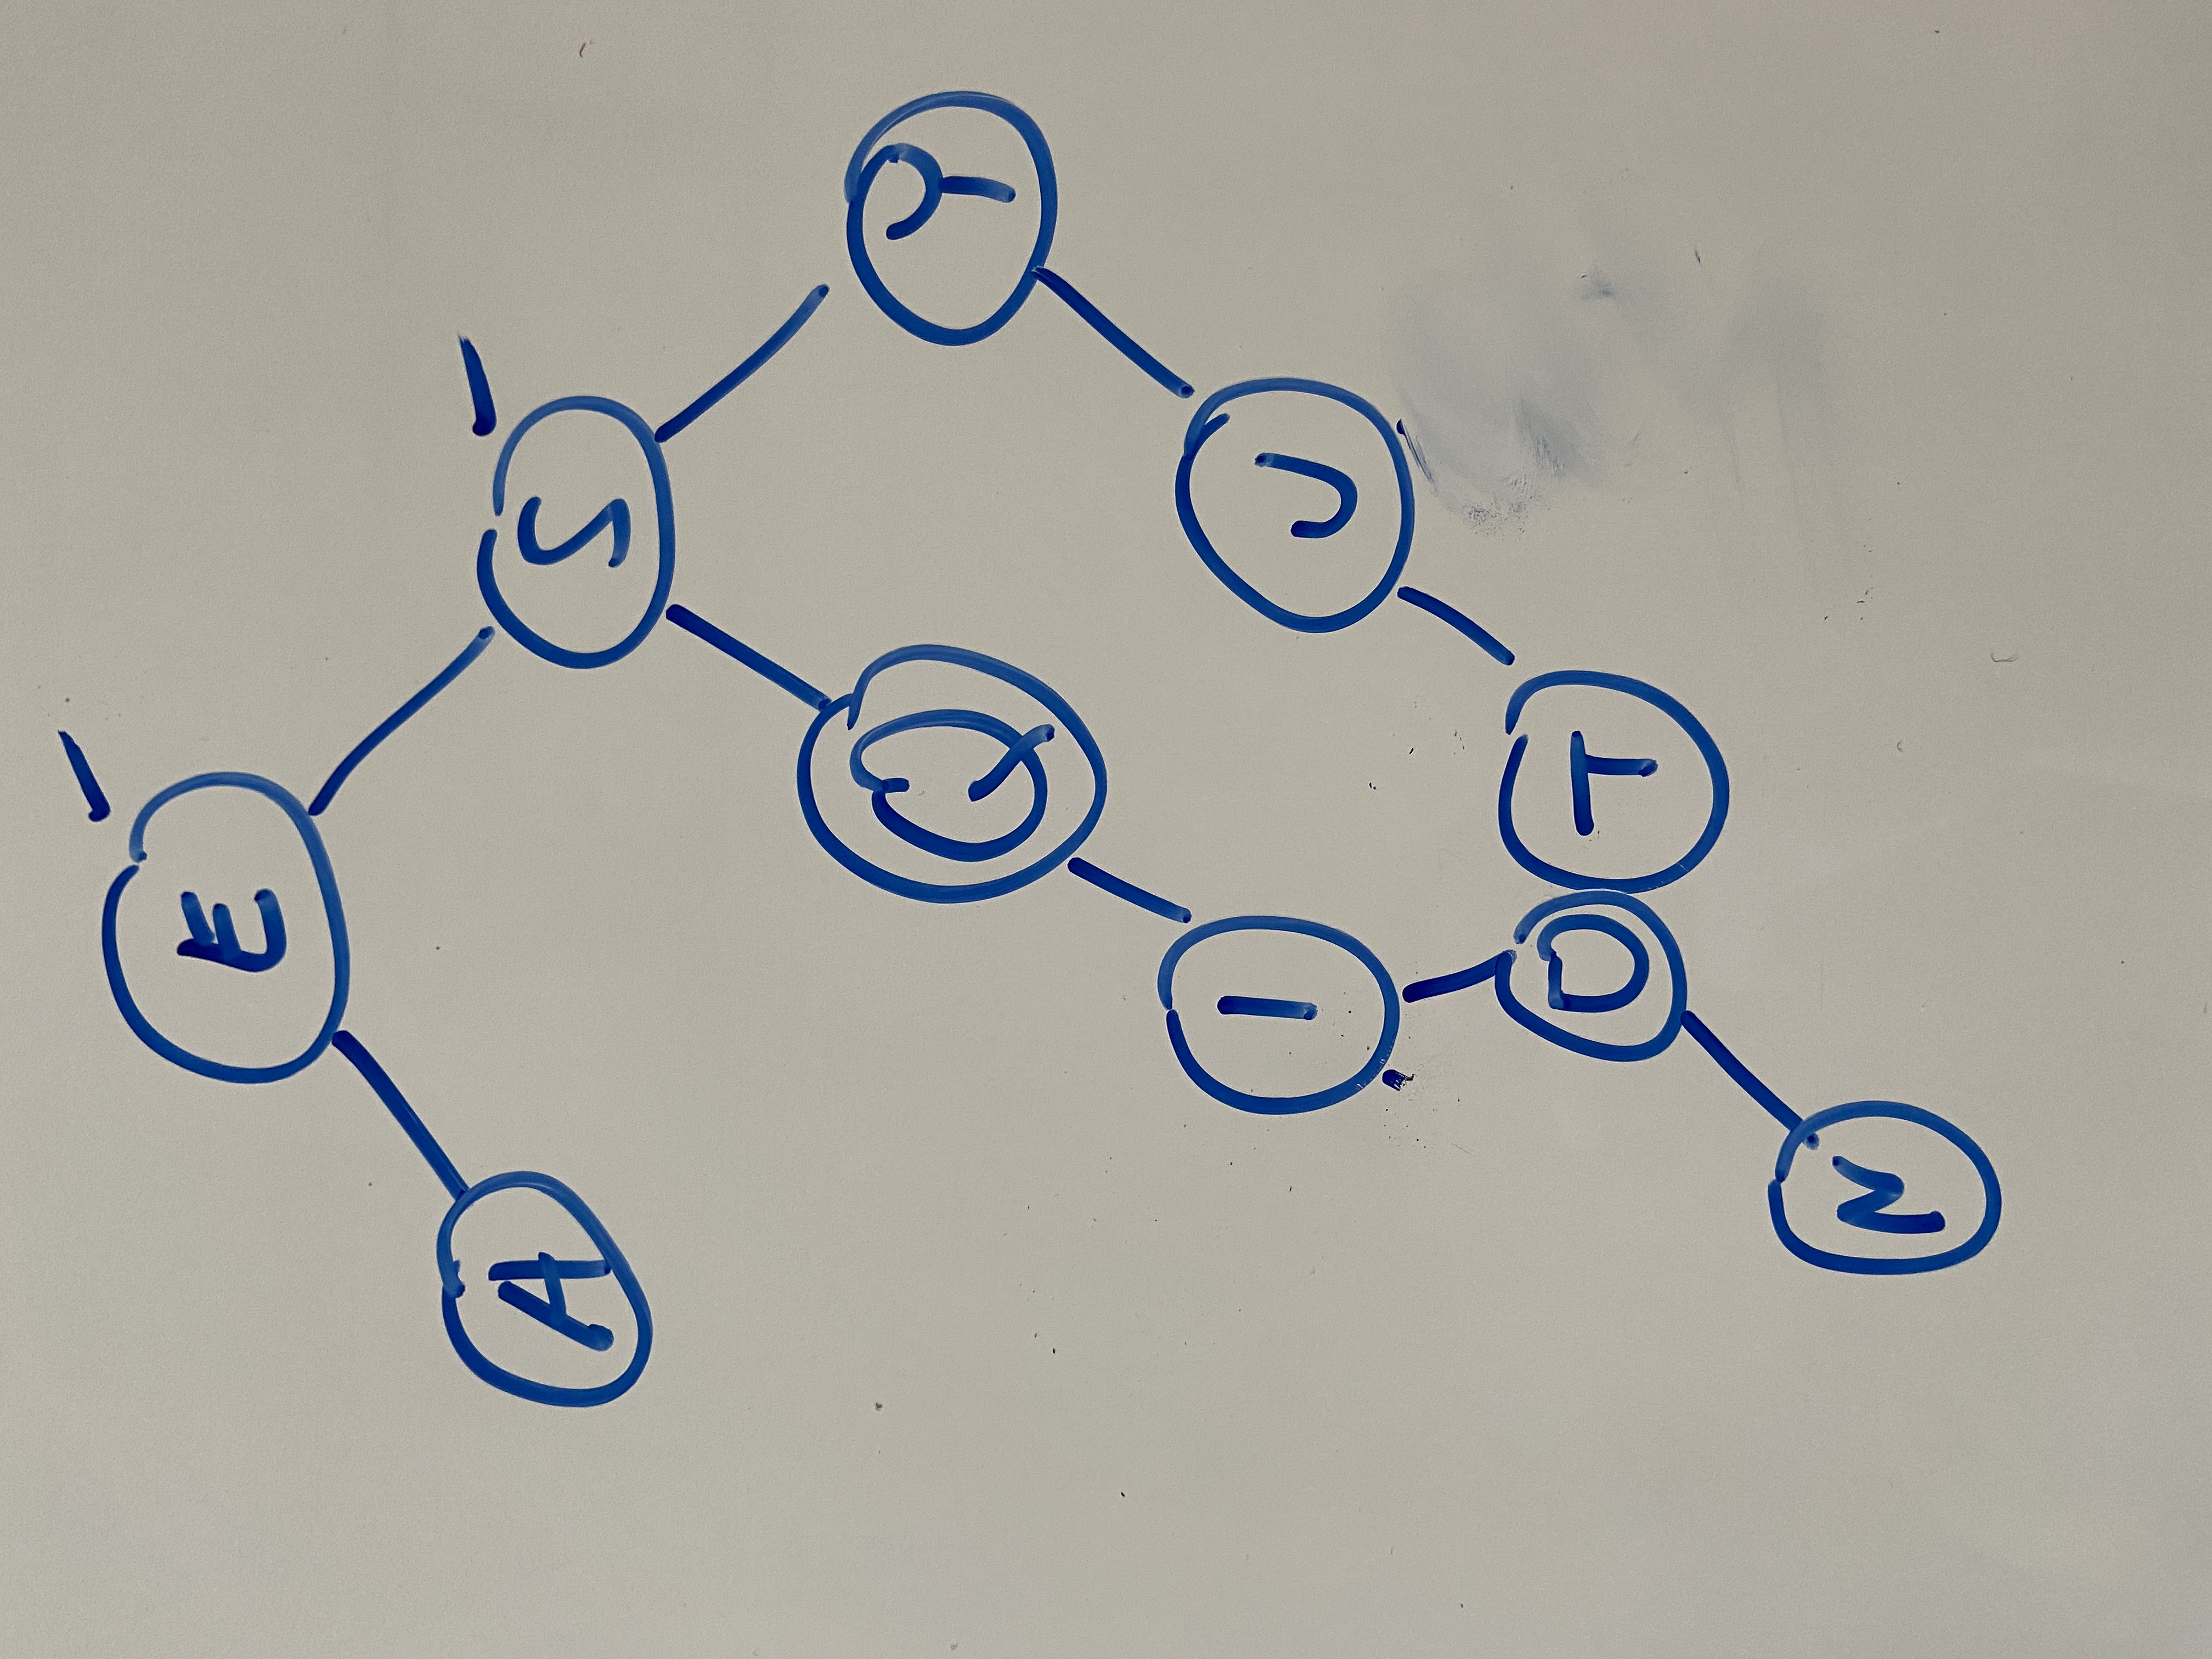 E
A
S
Q
Y
I
J
O
T
N